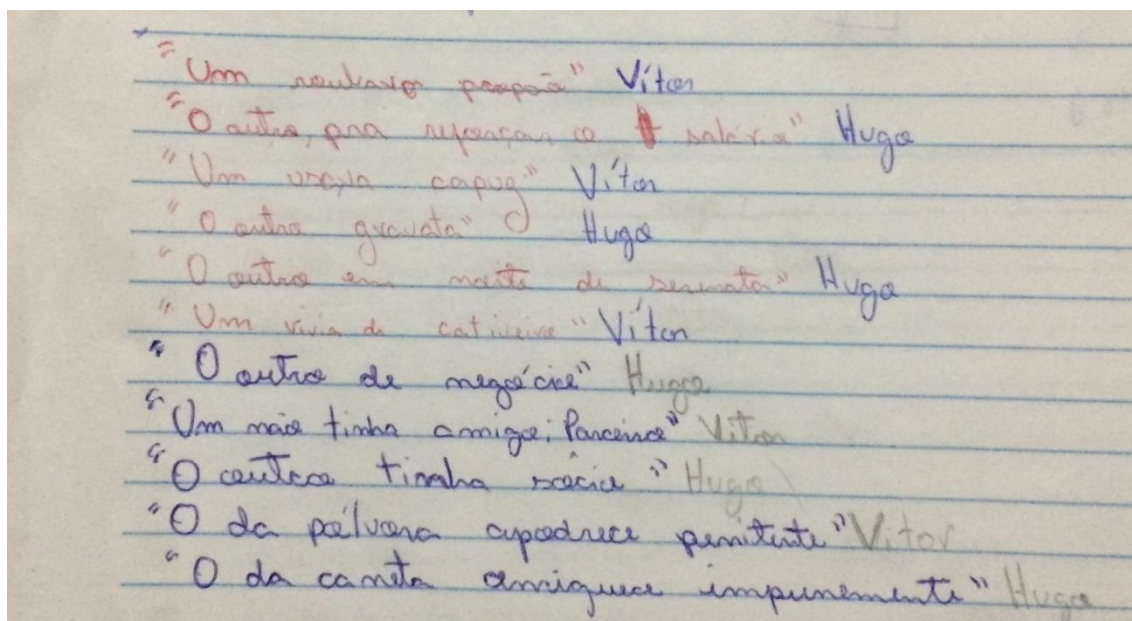 "Um roubava popopó" Vítor
"O outro, pra reforçar o salário" Hugo
"Um usava capuz" Vítor
"O outro gravata" Hugo
"O outro em noite de serenata" Hugo
"Um vivia de cativeiro" Vítor
"O outro de negócio" Hugo
"Um não tinha amigo: Parceiro" Vitor
"O outro tinha sócio" Hugo
"O da pólvora apodrece penitente" Vitor
"O da caneta enriquece impunemente" Hugo